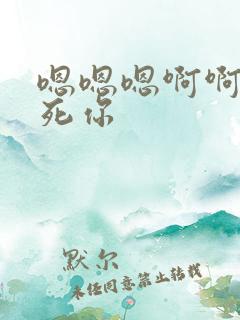 嗯嗯嗯啊啊
死你
默尔
未经同意禁止转载